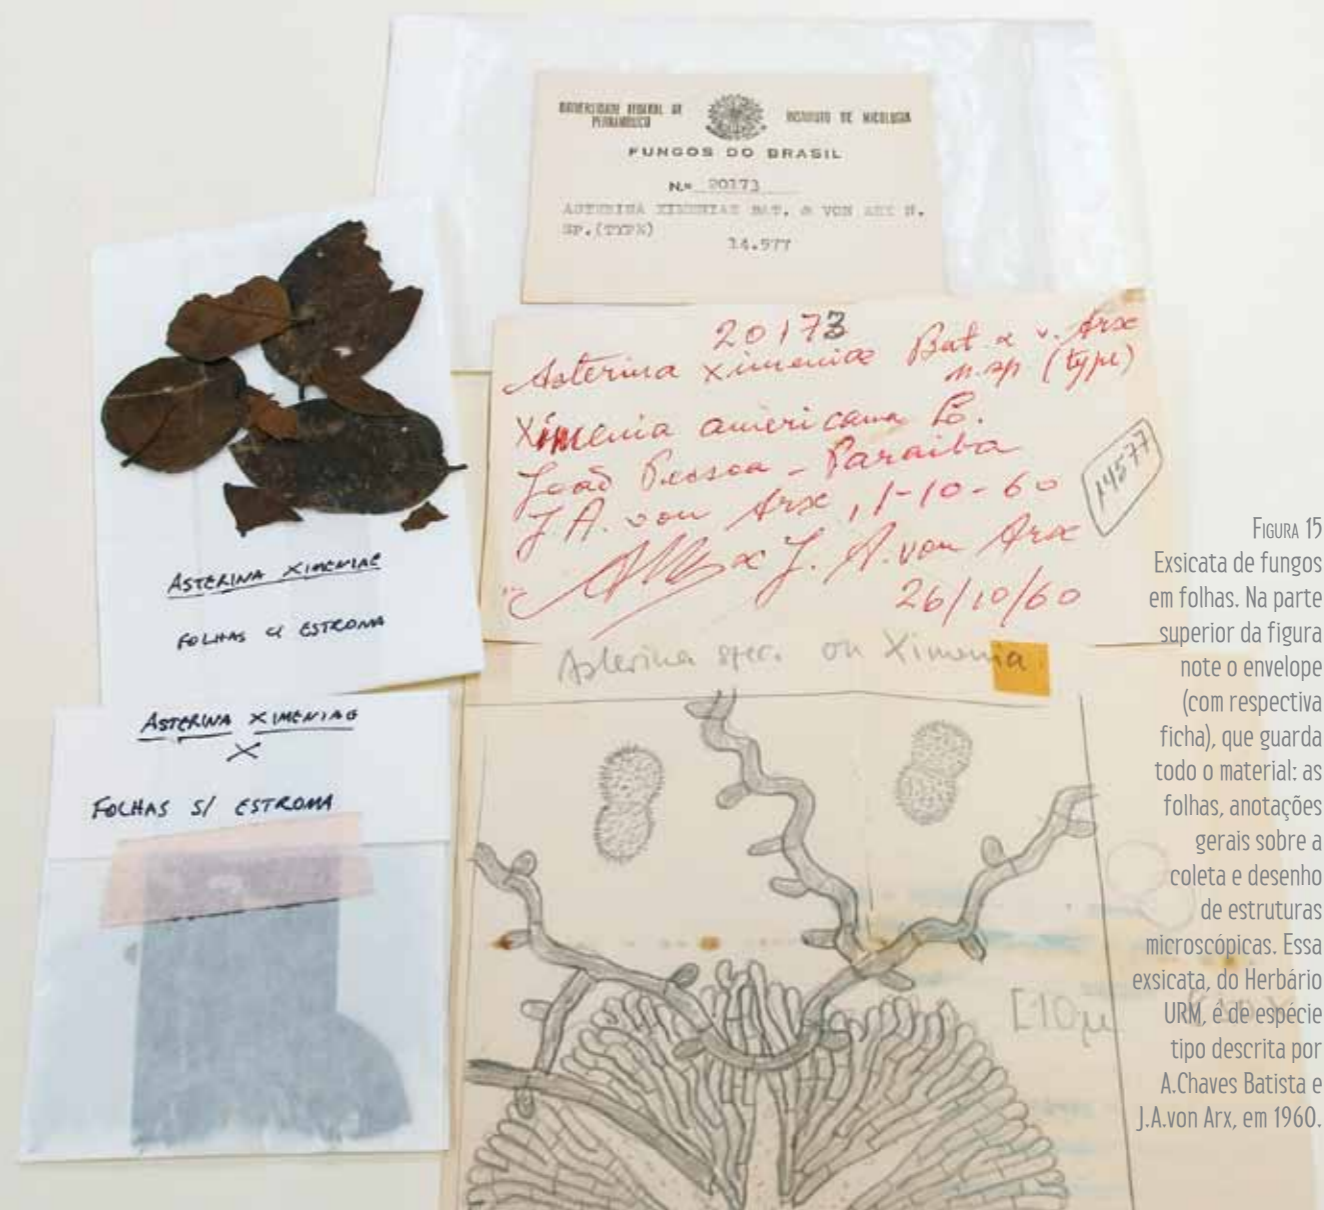 UNIVERSIDADE FEDERAL DE
PERNAMBUCO
INSTITUTO DE MICOLOGIA
FUNGOS DO BRASIL
N.º 20173
ASTERINA XIMENIAE BAT. & VON ARX N.
SP.(TYPE)
14.577
20173
Asterina ximeniae Bat & v. Arx
n.sp (type)
Ximenia americana L.
João Pessoa - Paraiba
J.A. von Arx, 1-10-60
& J. A. von Arx
26/10/60
14577
ASTERINA XIMENIAE
FOLHAS C/ ESTROMA
ASTERINA XIMENIAE
X
FOLHAS S/ ESTROMA
Asterina spec. on Ximenia.
10µ
FIGURA 15
Exsicata de fungos
em folhas. Na parte
superior da figura
note o envelope
(com respectiva
ficha), que guarda
todo o material: as
folhas, anotações
gerais sobre a
coleta e desenho
de estruturas
microscópicas. Essa
exsicata, do Herbário
URM, é de espécie
tipo descrita por
A.Chaves Batista e
J.A.von Arx, em 1960.